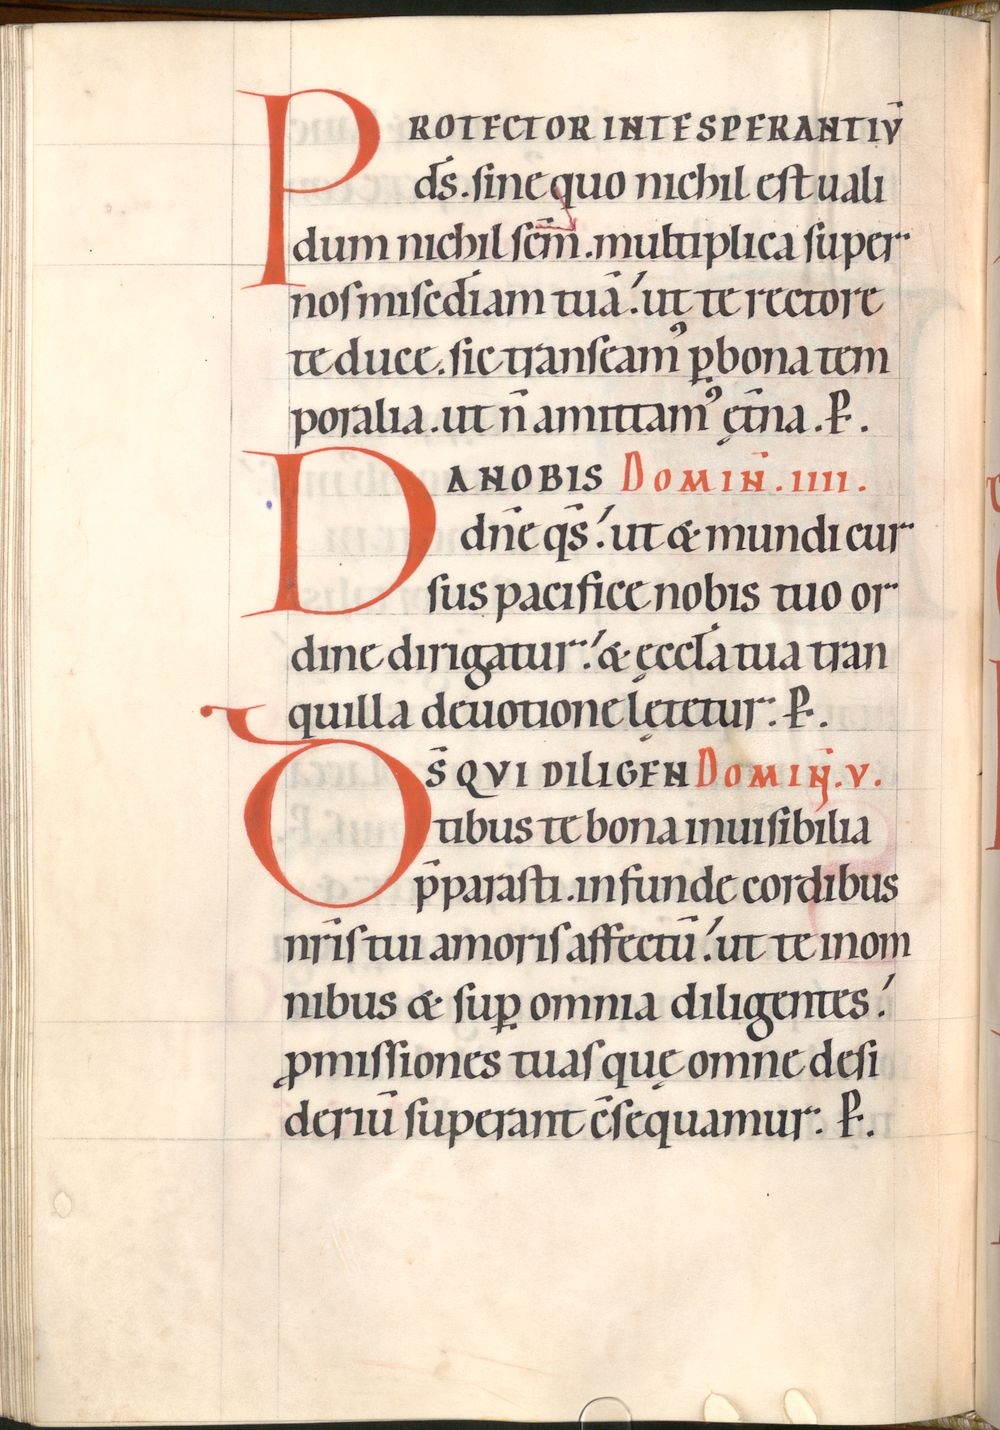 PROTECTOR IN TE SPERANTIṼ
d̄s. sine quo nichil est uali
dum nichil sc̄m. multiplica super
nos misedīam tuā. ut te rectore
te duce. sic transeamꝰ ꝑ bona tem
poralia. ut n̄ amittamꝰ ęt̄na. P̱.
DA NOBIS DOMIN̄. IIII.
dn̄e qs̄. ut & mundi cur
sus pacifice nobis tuo or
dine dirigatur. & ęccl̄a tua tran
quilla deuotione lętetur. P̱.
D̄S QVI DILIGEN DOMIN̄. V.
tibus te bona inuisibilia
p̄parasti. infunde cordibus
nr̄is tui amoris affectū. ut te in om
nibus & suꝑ omnia diligentes.
ꝓmissiones tuas quę omne desi
deriū superant c̄sequamur. P̱.